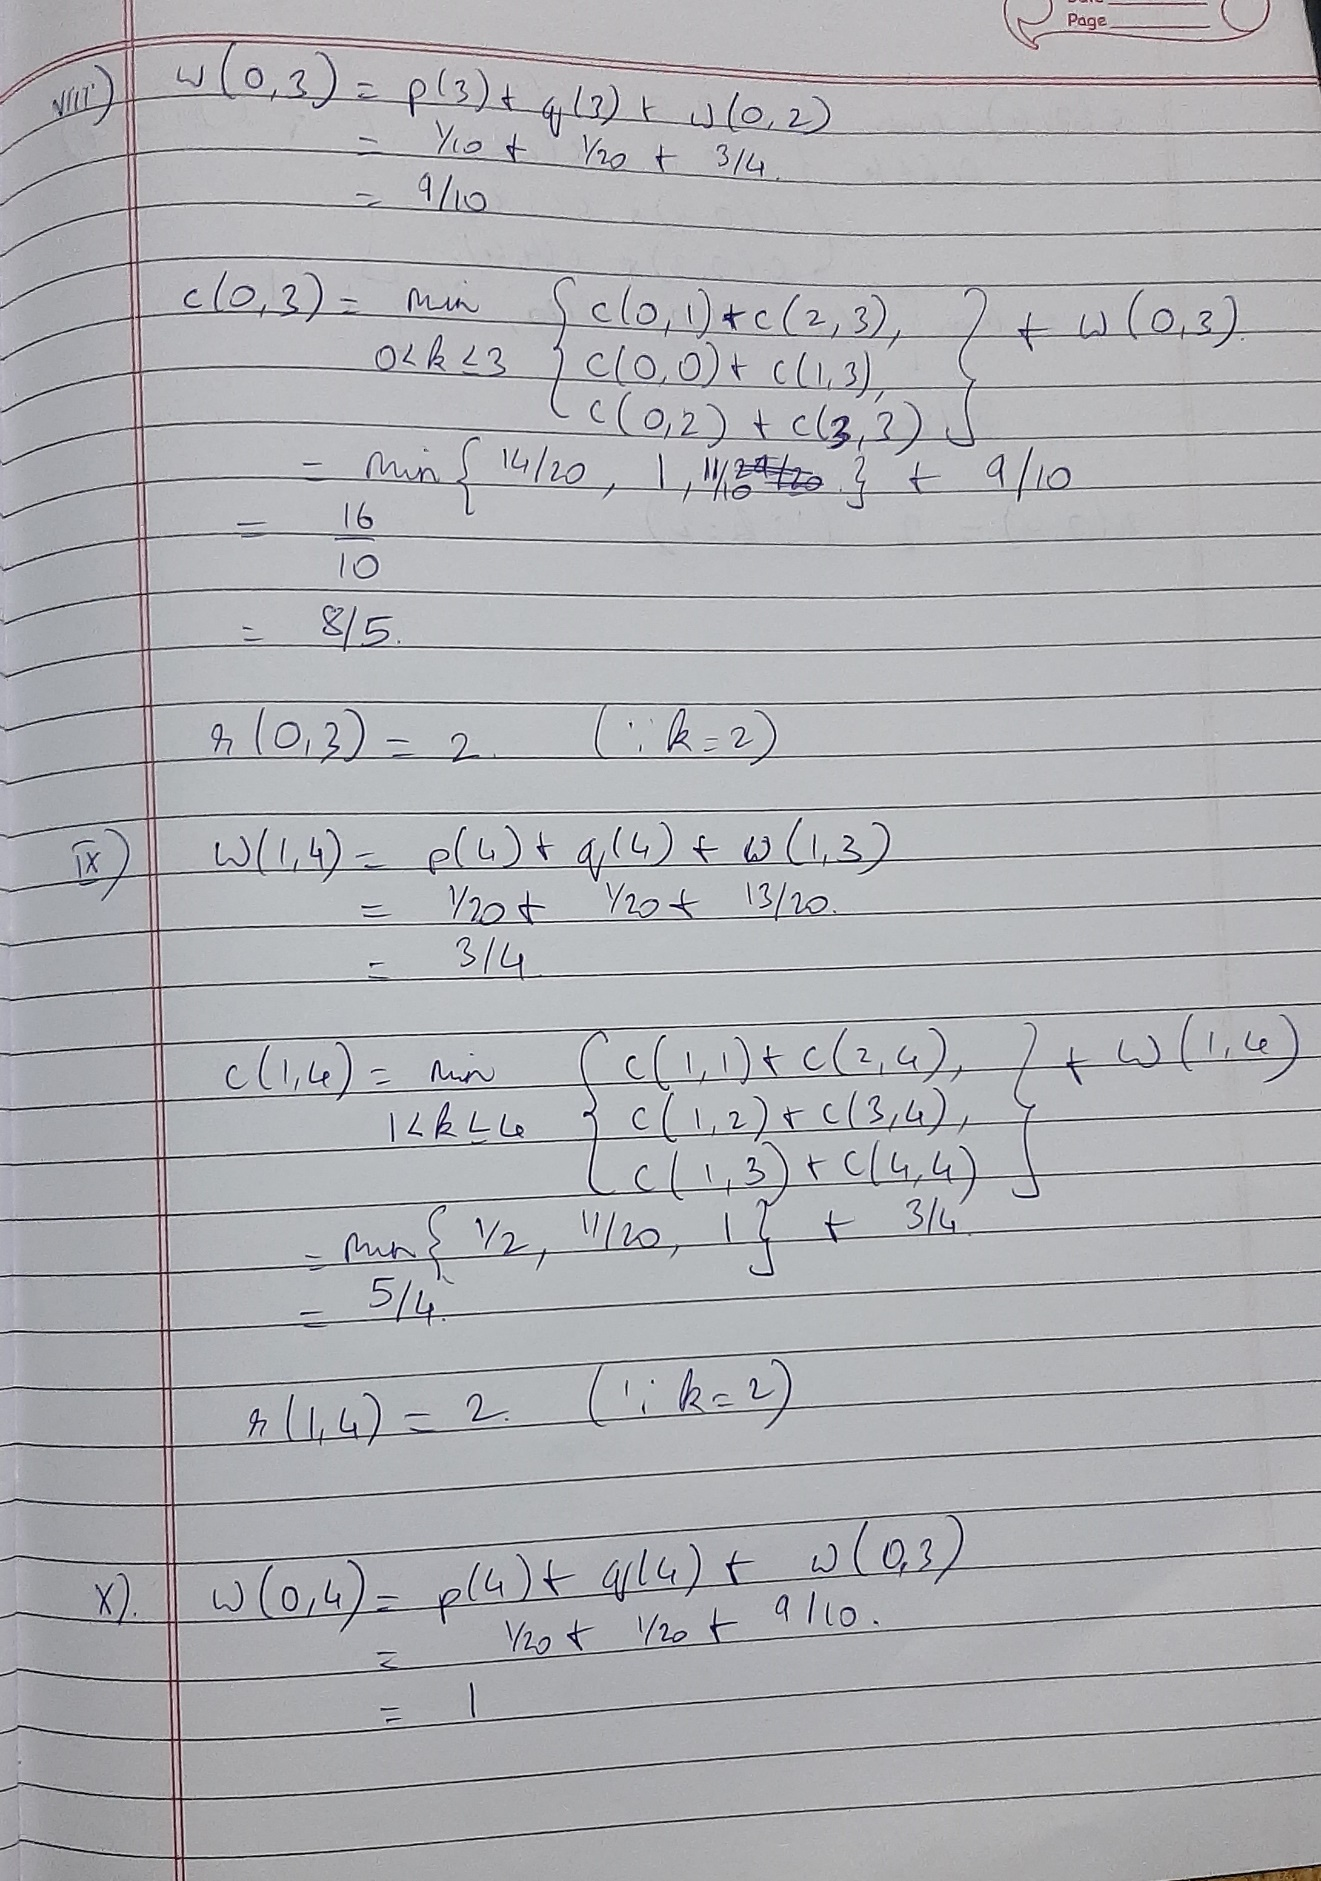 Page
viii) w(0,3) = p(3) + q(3) + w(0,2)
= 1/10 + 1/20 + 3/4.
= 9/10
c(0,3) = min { c(0,1) + c(2,3), } + w(0,3).
0<k≤3 c(0,0) + c(1,3),
c(0,2) + c(3,3)
= min { 14/20, 1, 11/10 } + 9/10
= 16
10
= 8/5.
r(0,3) = 2. (∵ k=2)
ix) w(1,4) = p(4) + q(4) + w(1,3)
= 1/20 + 1/20 + 13/20.
= 3/4
c(1,4) = min { c(1,1) + c(2,4), } + w(1,4)
1<k≤4 c(1,2) + c(3,4),
c(1,3) + c(4,4)
= min { 1/2, 11/20, 1 } + 3/4
= 5/4.
r(1,4) = 2. (∵ k=2)
x). w(0,4) = p(4) + q(4) + w(0,3)
= 1/20 + 1/20 + 9/10.
= 1